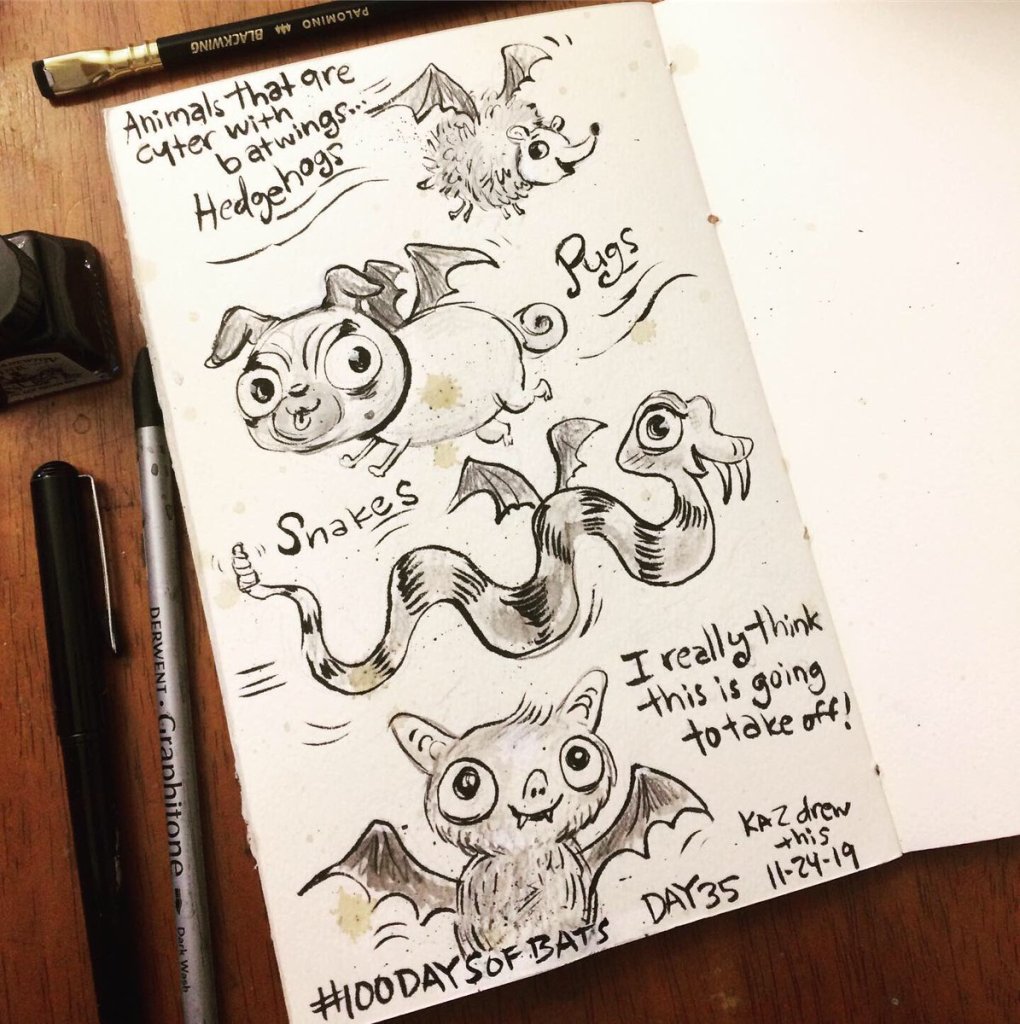 PALOMINO
BLACKWING
Animals that are
cuter with
batwings...
Hedgehogs
Pugs
Snakes
I really think
this is going
to take off!
KAZ drew
this
11-24-19
DAY 35
#100DAYSOFBATS
DERWENT · Graphitone
Dark Wash